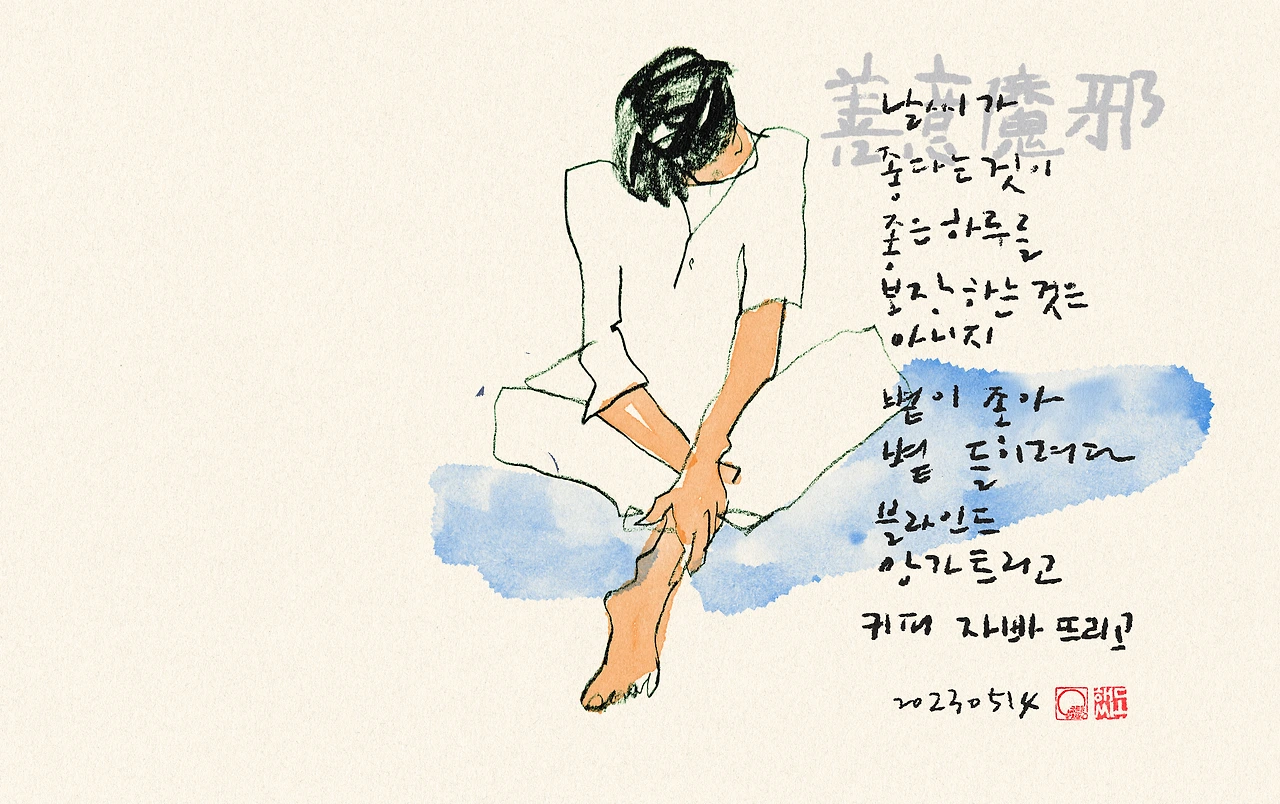 善意魔邪
날씨가
좋다는 것이
좋은 하루를
보장하는 것은
아니지
볕이 좋아
볕 들히려다
블라인드
망가트리고
커피 자바뜨리고
20230514